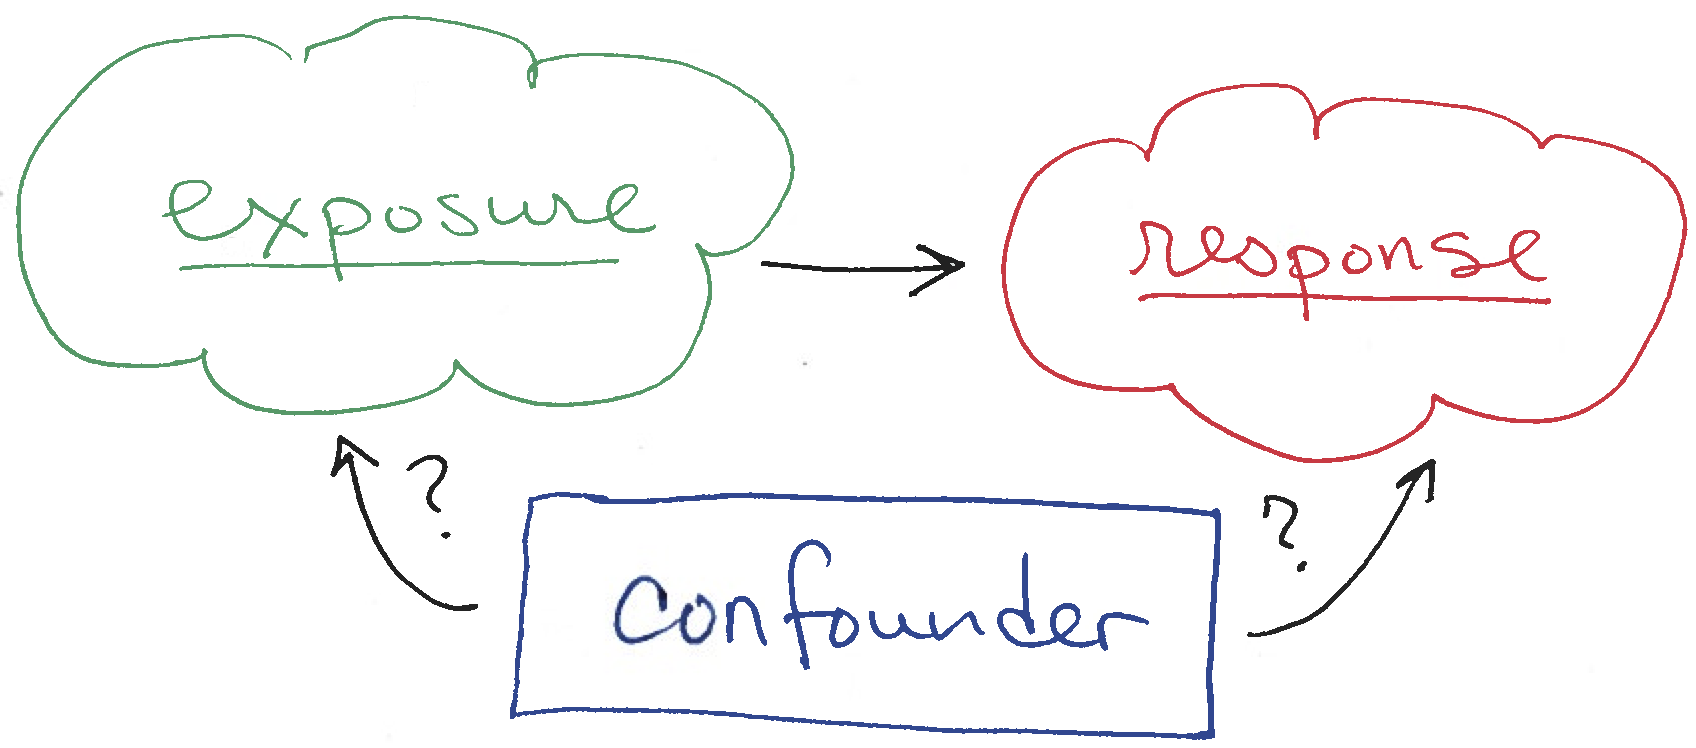 exposure
response
?
?
Confounder